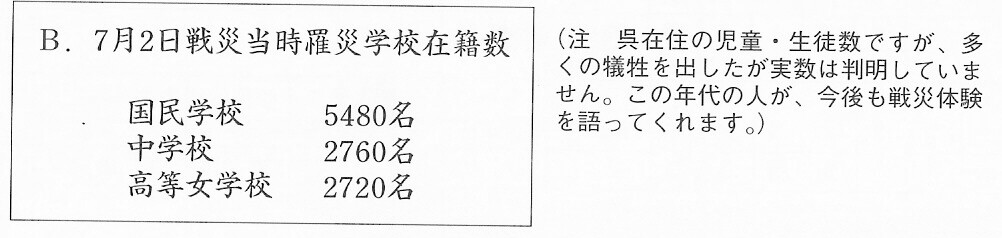 B. 7月2日戦災当時罹災学校在籍数
国民学校 5480名
中学校 2760名
高等女学校 2720名
(注 呉在住の児童・生徒数ですが、多
くの犠牲を出したが実数は判明していま
せん。この年代の人が、今後も戦災体験
を語ってくれます。)